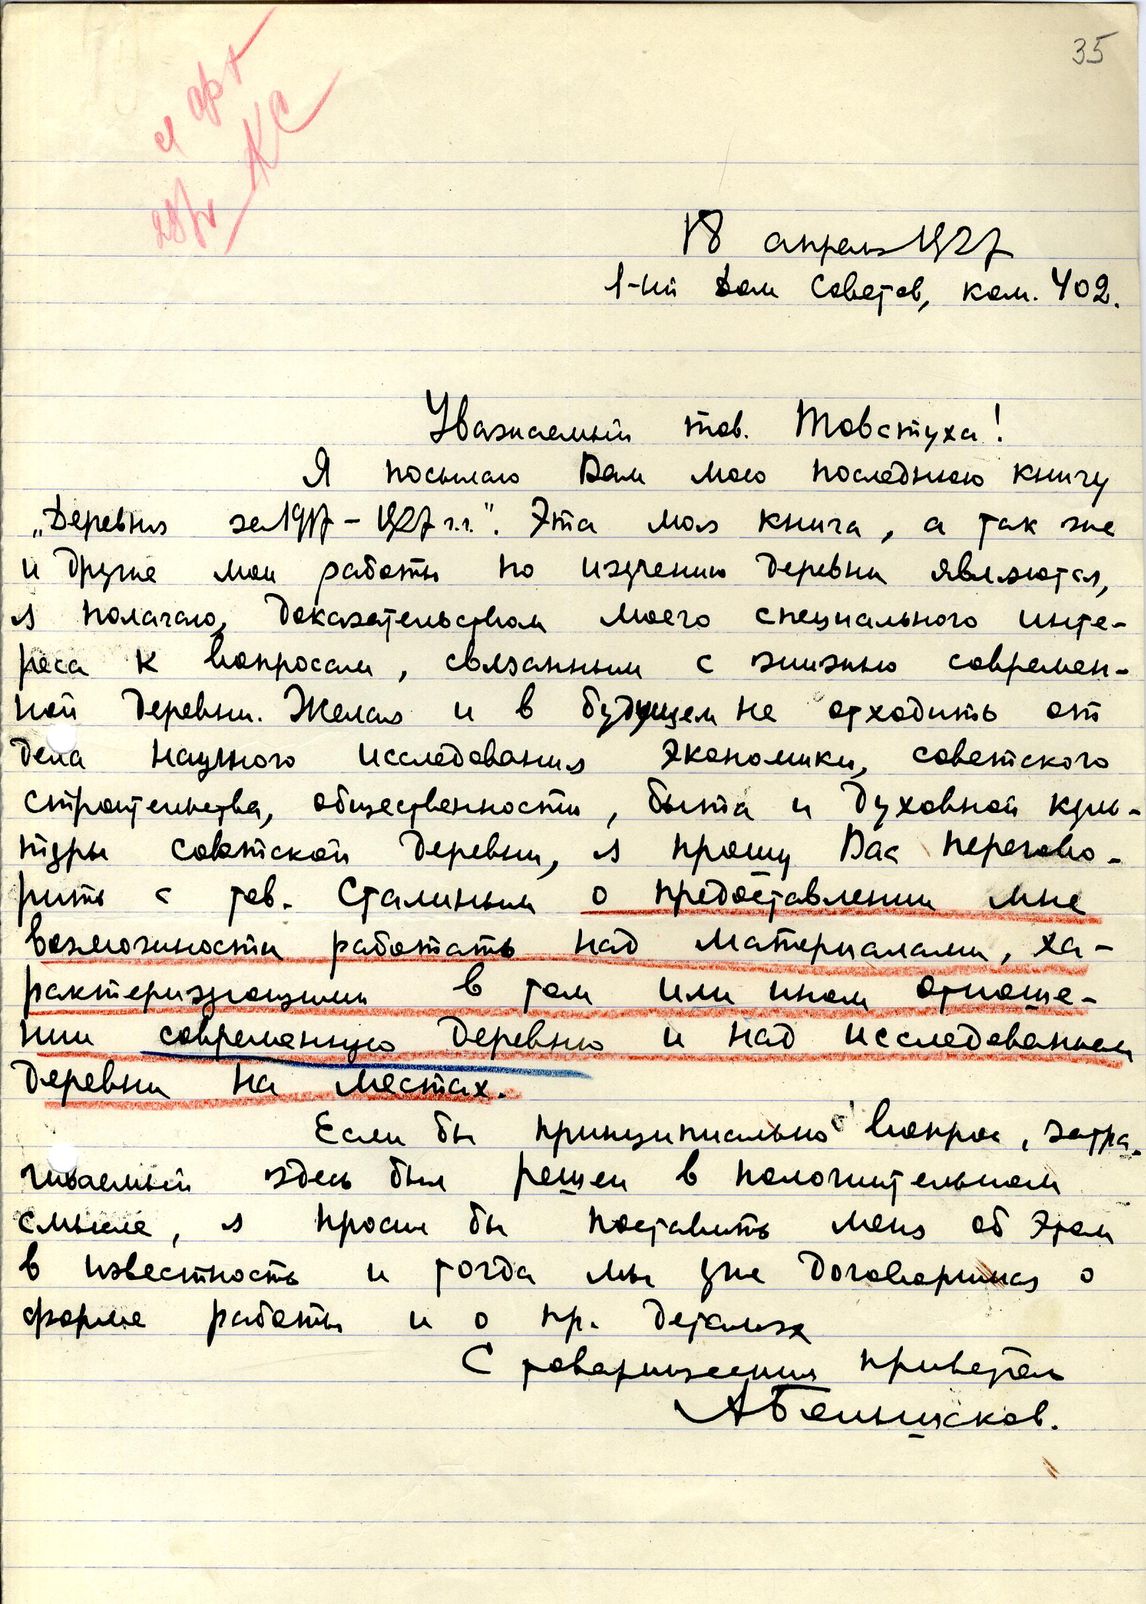 35
в арх
КС
18 апреля 1927
1-ый Дом Советов, ком. 402.
Уважаемый тов. Товстуха!
Я посылаю Вам мою последнюю книгу
„Деревня за 1917–1927 г.г.". Эта моя книга, а так же
и другие мои работы по изучению деревни являются,
я полагаю, доказательством моего специального инте-
реса к вопросам, связанным с жизнью современ-
ной деревни. Желая и в будущем не отходить от
дела научного исследования экономики, советского
строительства, общественности, быта и духовной куль-
туры советской деревни, я прошу Вас перегово-
рить с тов. Сталиным о предоставлении мне
возможности работать над материалами, ха-
рактеризующими в том или ином отноше-
нии современную деревню и над исследованием
деревни на местах.
Если бы принципиально вопрос, затра-
гиваемый здесь был решен в положительном
смысле, я просил бы поставить меня об этом
в известность и тогда мы уже договоримся о
форме работы и о пр. деталях
С товарищеским приветом
АБольшаков.